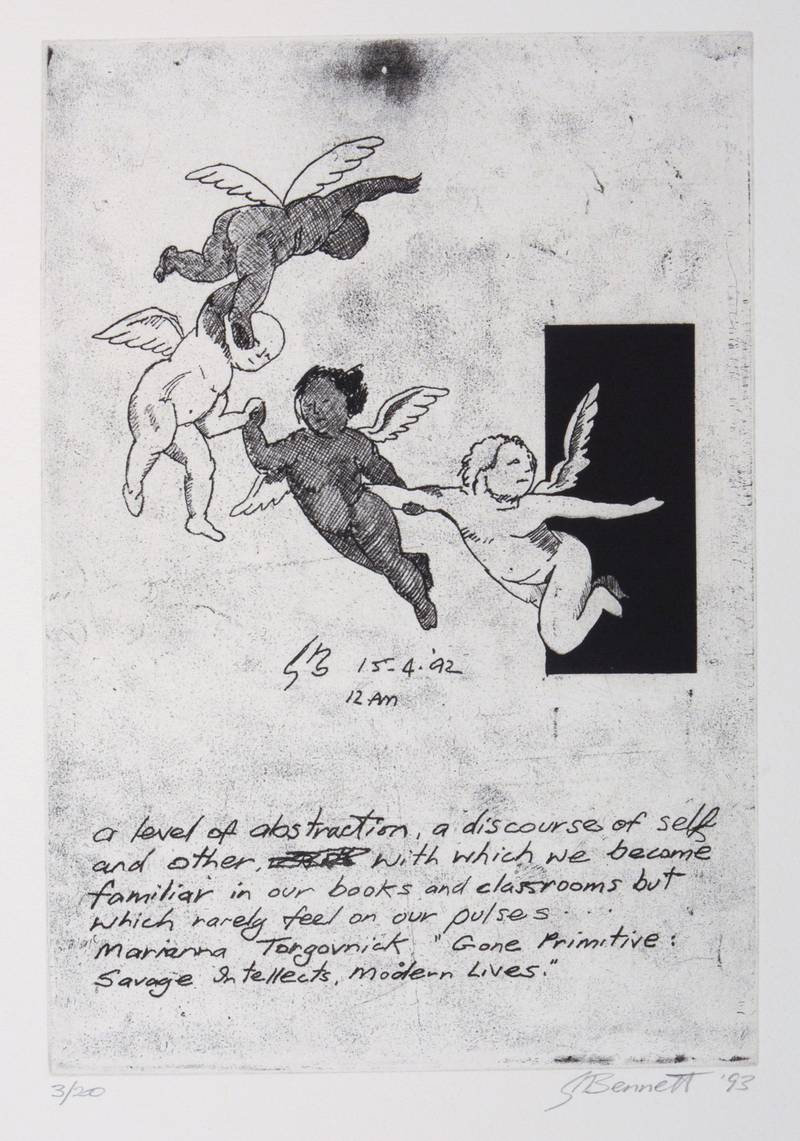 GB 15-4-'92
12 AM
a level of abstraction, a discourse of self
and other, with which we become
familiar in our books and classrooms but
which rarely feel on our pulses ....
"Marianna Torgovnick, "Gone Primitive:
Savage Intellects, Modern Lives."
3/20 G Bennett '93